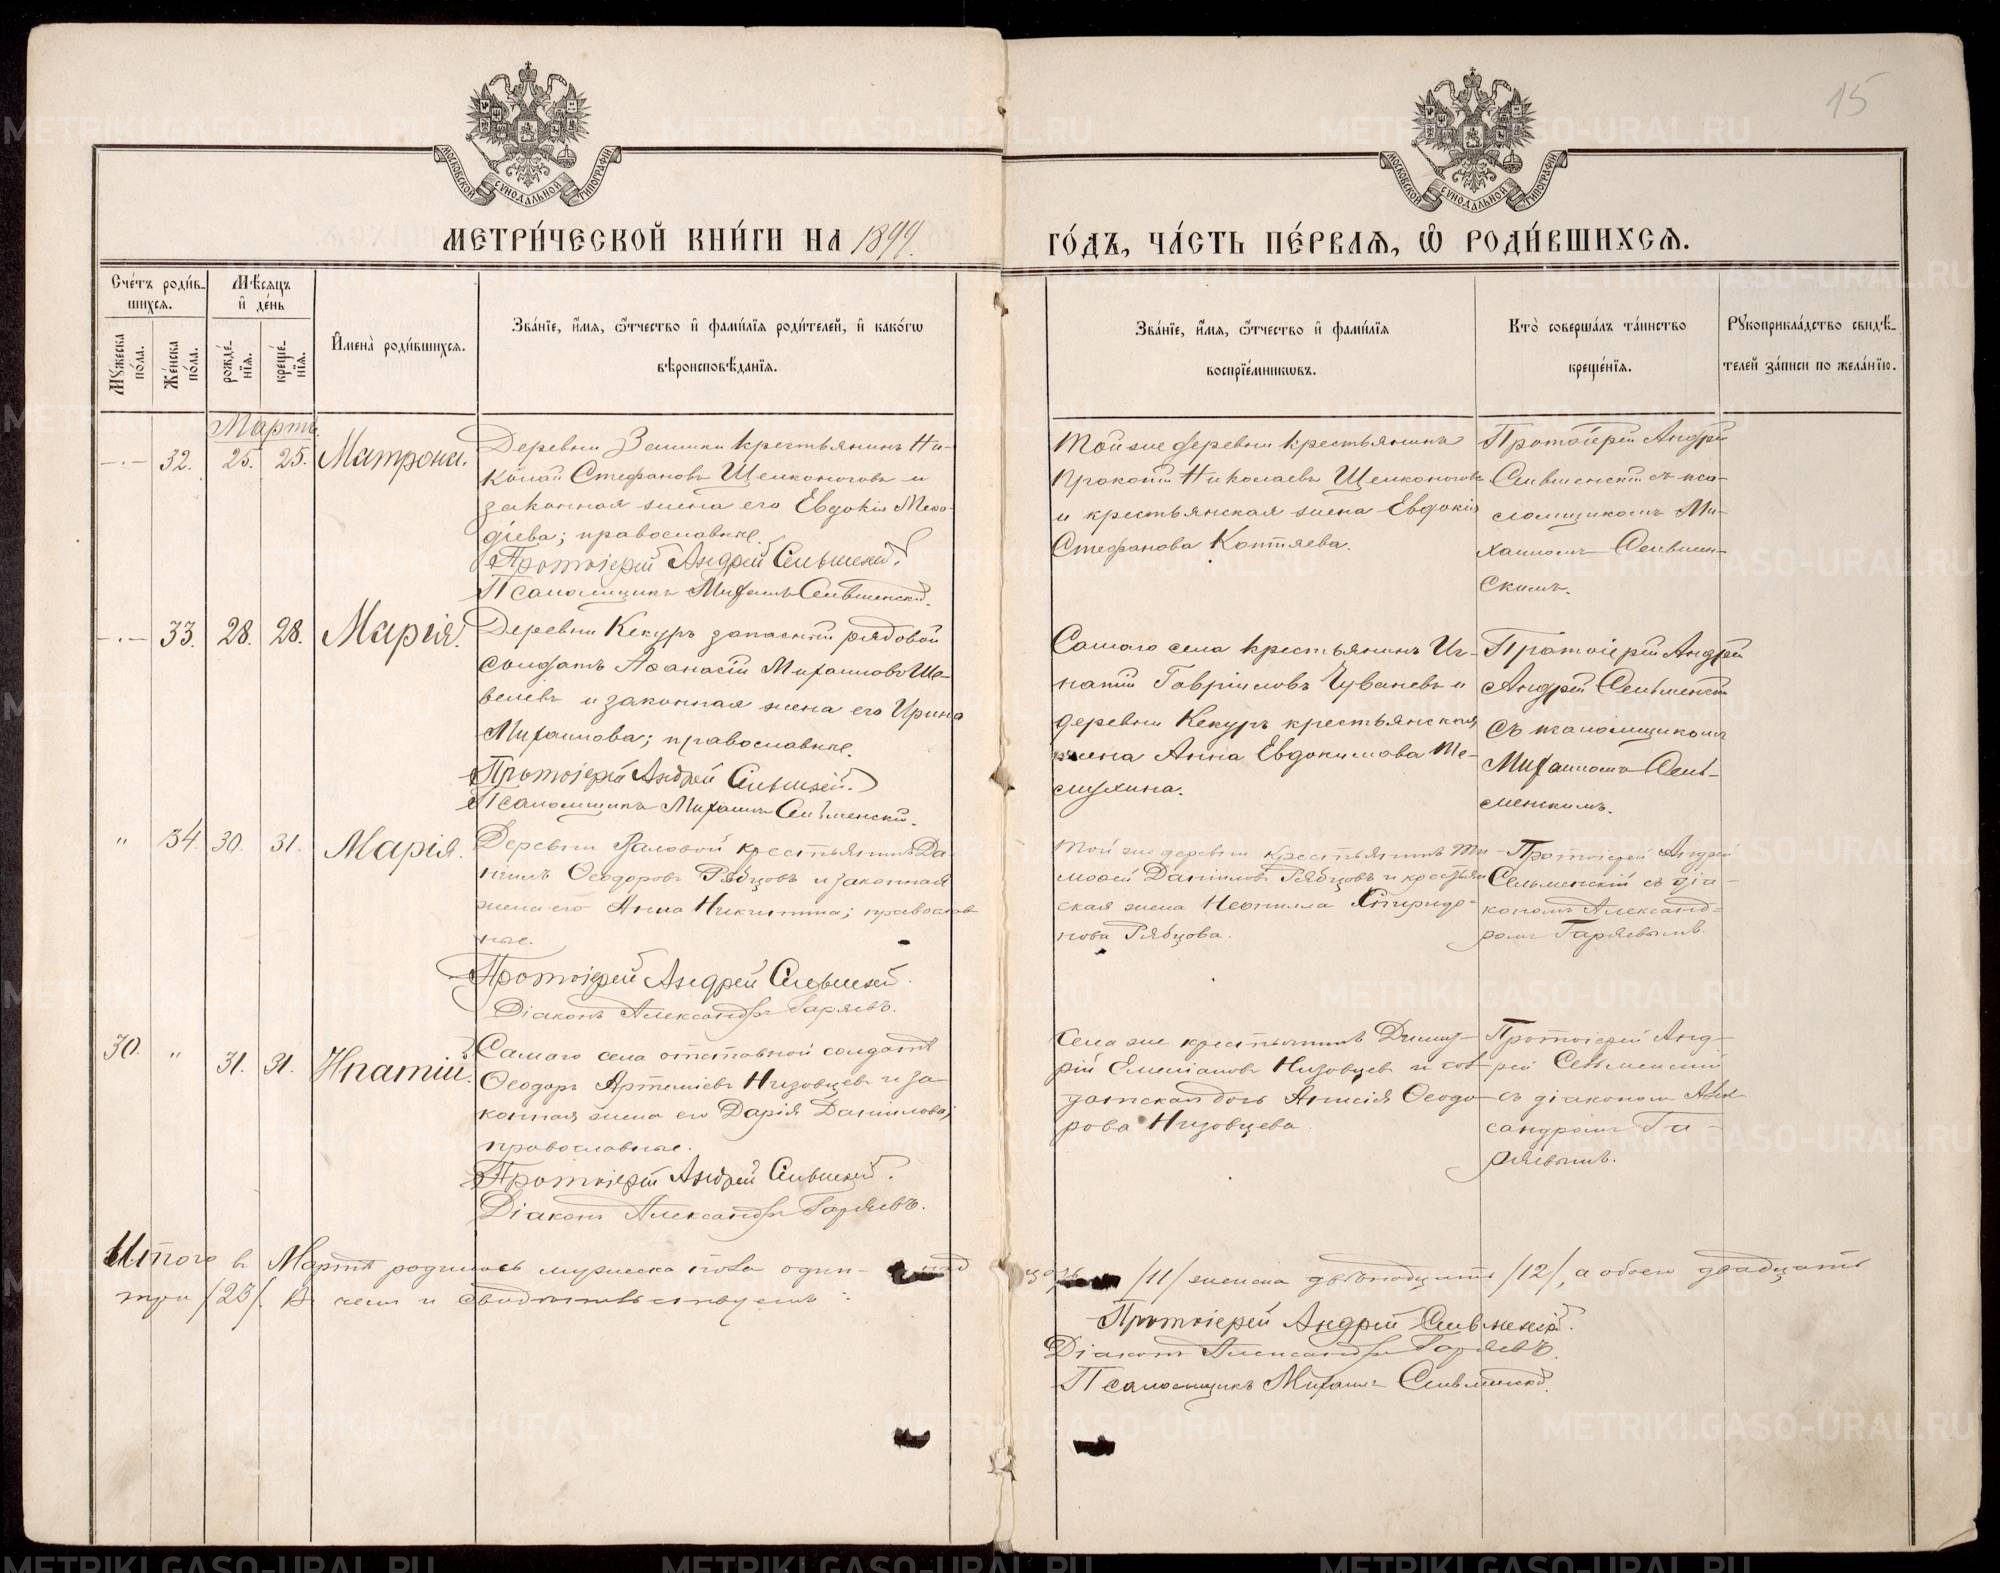 15
МОСКОВСКОЙ СѴНОДАЛЬНОЙ ТИПОГРАФІИ
МОСКОВСКОЙ СѴНОДАЛЬНОЙ ТИПОГРАФІИ
МЕТРИ́ЧЕСКОЙ КНИ́ГИ НА 1899.
ГО́ДЪ, ЧА́СТЬ ПЕ́РВАЯ, Ѡ РОДИ́ВШИХСЯ.
Сче́тъ роди́в-
шихся.
Мѣ́сяцъ
и҆ де́нь
Мꙋ́жеска по́ла.
Же́нска по́ла.
рожде́нїя.
креще́нїя.
И҆мена̀ роди́вшихся.
Зва́нїе, и҆́мя, ѻ҆́тчество и҆ фами́лїя роди́телей, и҆ како́гѡ
вѣроисповѣ́данїя.
Зва́нїе, и҆́мя, ѻ҆́тчество и҆ фами́лїя
воспрїе́мникѡвъ.
Кто̀ соверша́лъ та́инство
креще́нїя.
Рꙋкоприкла́дство свидѣ́-
телей за́писи по жела́нїю.
Мартъ.
32. 25. 25. Матрона.
Деревни крестьянинъ Ни-
колай Стефановъ Щелконоговъ и
законная жена его Евдокія Меѳо-
діева; православные.
Протоіерей Андрей Сельменскій.
Псаломщикъ Михаилъ Сельменскій.
Тойже деревни крестьянинъ
Прокопій Николаевъ Щелконоговъ
и крестьянская жена Евдокія
Стефанова Коптяева.
Протоіерей Андрей
Сельменскій съ пса-
ломщикомъ Ми-
хаиломъ Сельмен-
скимъ.
33. 28. 28. Марія.
Деревни Кекуръ запасный рядовой
солдатъ Аѳанасій Михаиловъ Ше-
велевъ и законная жена его Ирина
Михаилова; православные.
Протоіерей Андрей Сельменскій.
Псаломщикъ Михаилъ Сельменскій.
Самаго села крестьянинъ Иг-
натій Гавріиловъ Чуваевъ и
деревни Кекуръ крестьянская
жена Анна Евдокимова
Протоіерей Андрей
Андрей Сельменскій
съ псаломщикомъ
Михаиломъ Сель-
менскимъ.
" 34. 30. 31. Марія.
Деревни крестьянинъ Да-
ніилъ Ѳеодоровъ Рябцовъ и законная
жена его Анна Никитина; православ-
ные.
Протоіерей Андрей Сельменскій.
Діаконъ Александръ Гаряевъ.
Той же деревни крестьянинъ Ти-
моѳей Даниловъ Рябцовъ и крестьян-
ская жена Неонилла Спиридо-
нова Рябцова.
Протоіерей Андрей
Сельменскій съ діа-
кономъ Александ-
ромъ Гаряевымъ.
30. " 31. 31. Ипатій.
Самаго села отставной солдатъ
Ѳеодоръ Артеміевъ Низовцевъ и за-
конная жена его Дарія Даніилова;
православные.
Протоіерей Андрей Сельменскій.
Діаконъ Александръ Гаряевъ.
Села же крестьянинъ Димит-
рій Емеліановъ Низовцев и сол-
датская дочь Анисія Ѳеодо-
рова Низовцева.
Протоіерей Анд-
рей Сельменскій
съ діакономъ Алек-
сандромъ Га-
ряевымъ.
Итого въ Мартѣ родилось мужеска пола один-над цать /11/ женска двѣнадцать /12/, а обоего двадцать
три /23/. Въ чемъ и свидѣтельствуемъ:
Протоіерей Андрей Сельменскій.
Діаконъ Александръ Гаряевъ.
Псаломщикъ Михаилъ Сельменскій.
METRIKI.GASO-URAL.RU